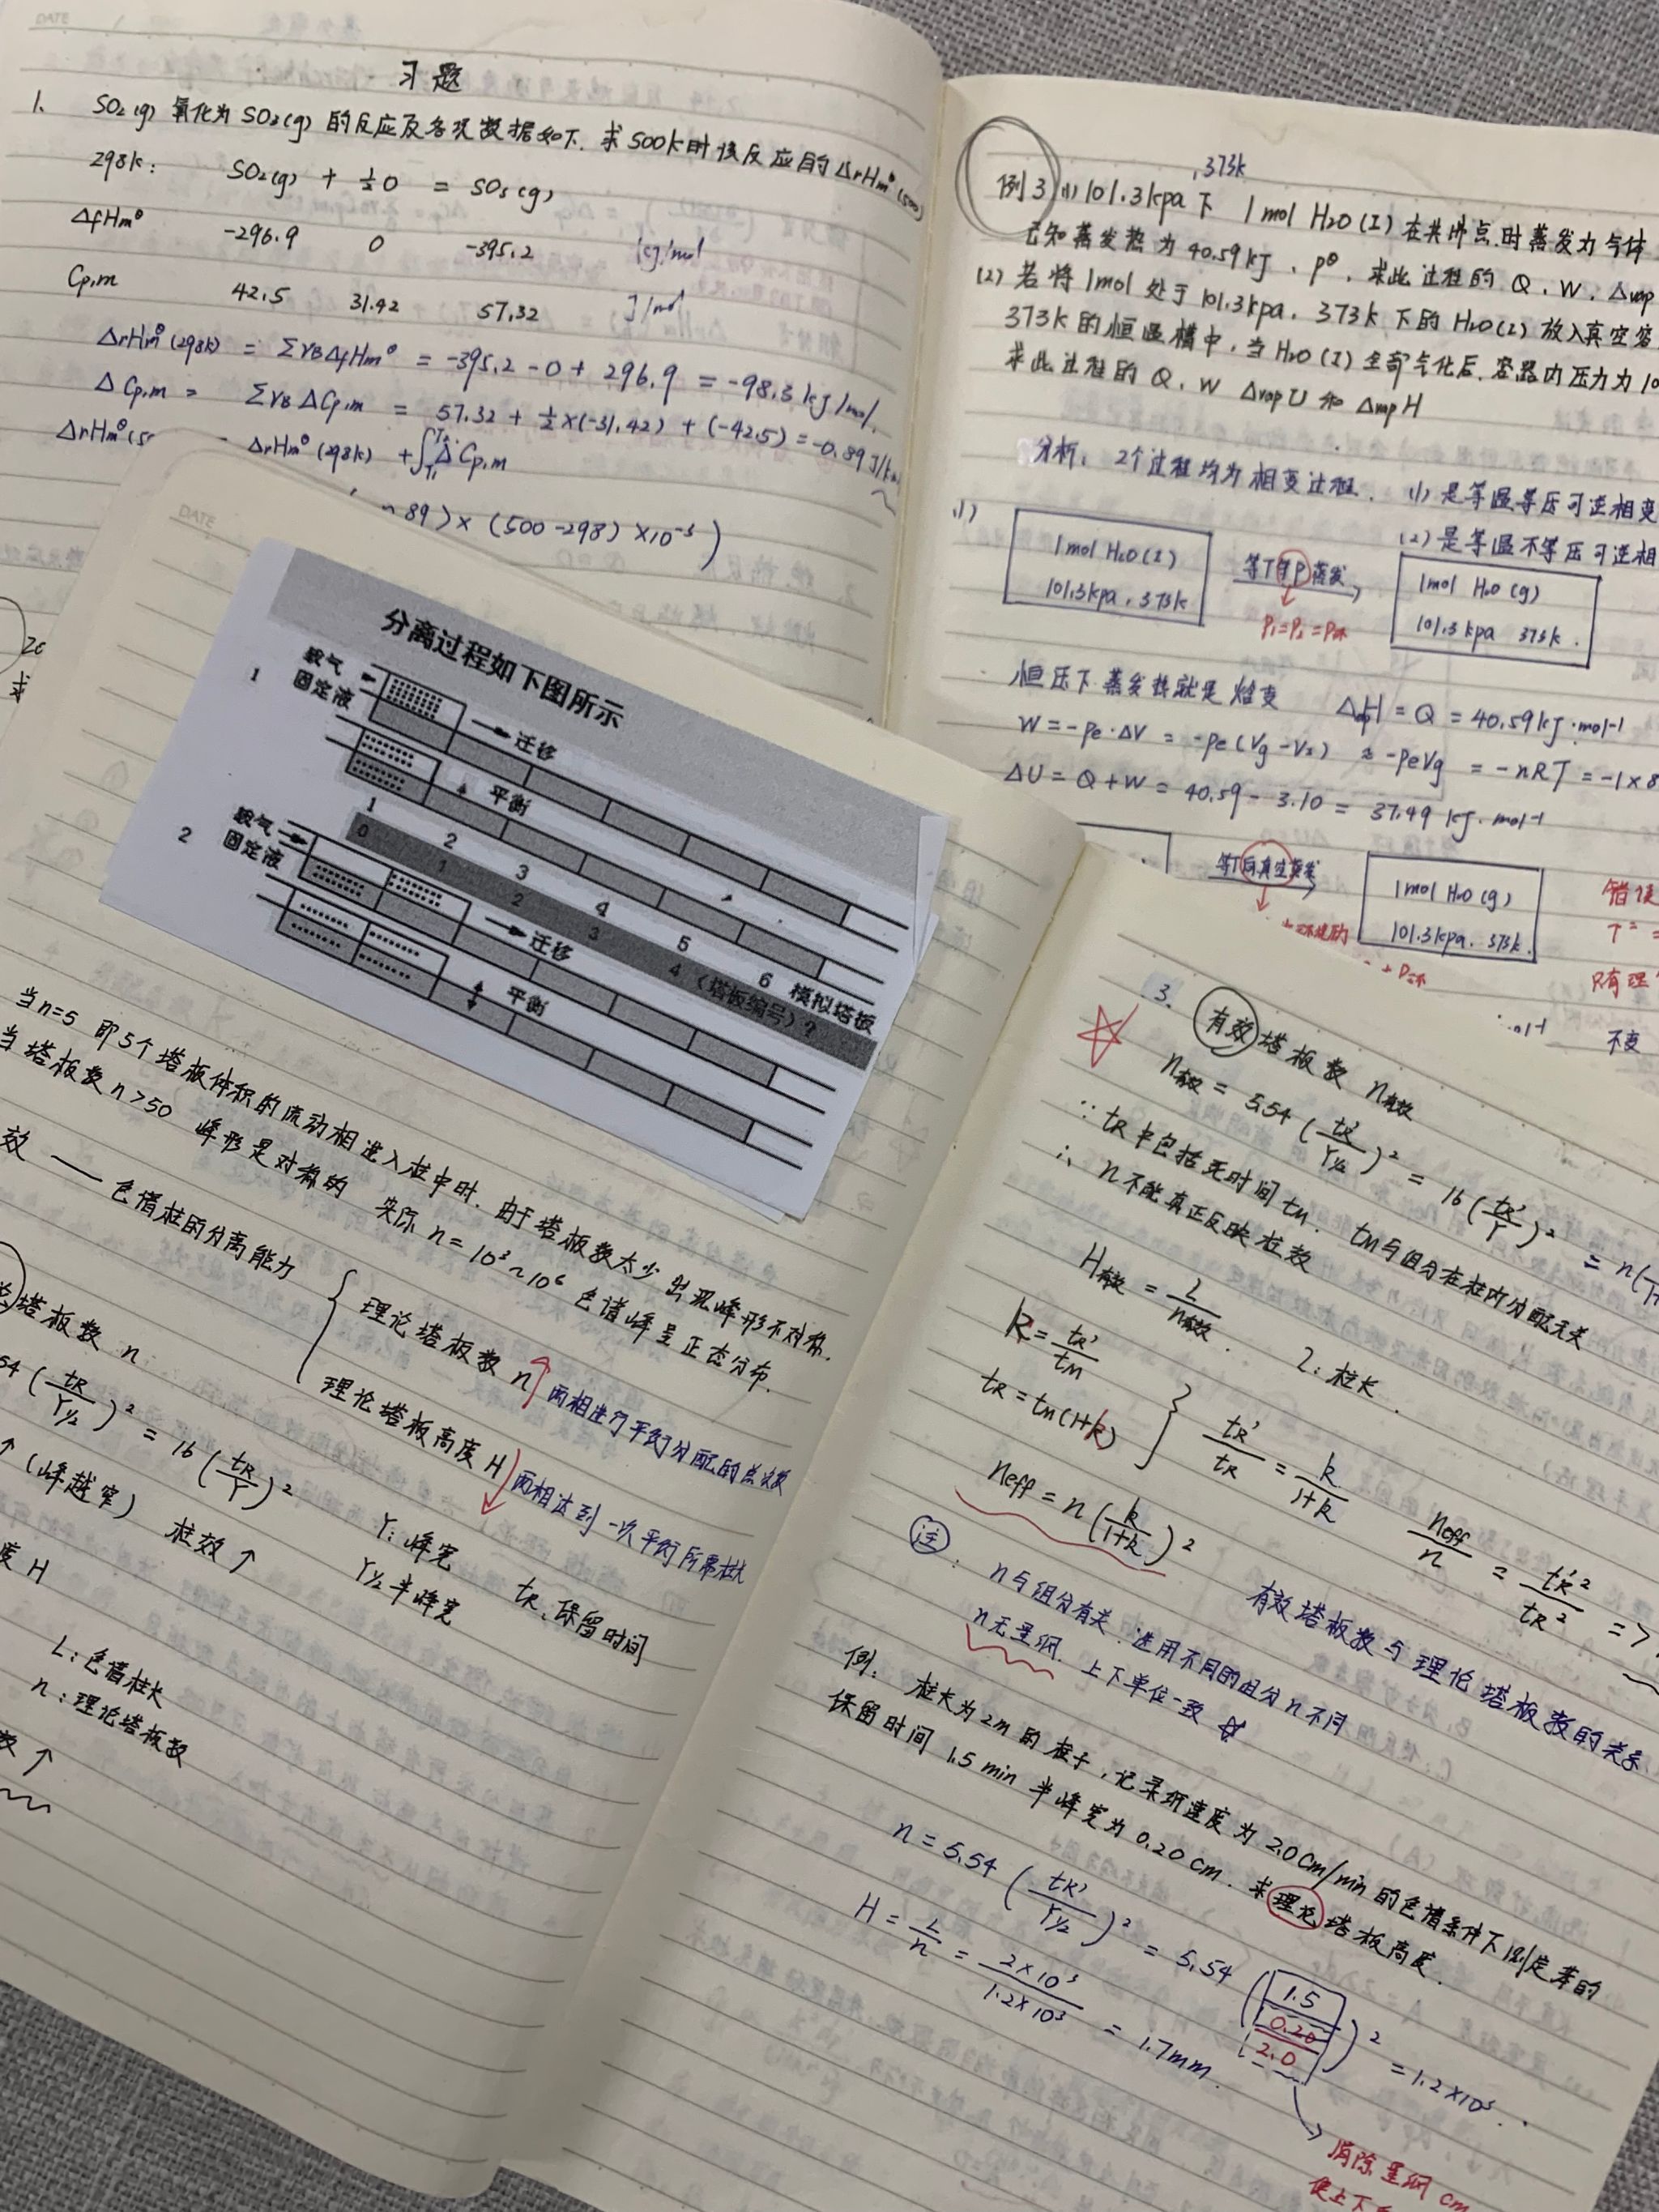 习题
1. SO₂(g) 氧化为 SO₃(g) 的反应及各项数据如下. 求500k时该反应的ΔrHmθ(500)
298k: SO₂(g) + ½O = SO₃(g)
ΔfHmθ -296.9 0 -395.2 kJ/mol
Cp,m 42.5 31.42 57.32 J/mol
ΔrHmθ(298k) = ΣγBΔfHmθ = -395.2-0+296.9 = -98.3kJ/mol.
ΔCp,m = ΣγBΔCp,m = 57.32 + ½×(-31.42) + (-42.5) = -0.89J/k
ΔrHmθ(5 ΔrHmθ(298k) + ∫ΔCp,m
89) × (500-298) ×10⁻³)
,373k
例3 (1) 101.3kpa下 1mol H₂O(l) 在其沸点.时蒸发为气体
已知蒸发热为40.59kJ. pθ. 求此过程的Q.W.Δvap
(2) 若将1mol处于101.3kpa. 373k下的H₂O(l)放入真空容
373k的恒温槽中. 当H₂O(l)全部气化后. 容器内压力为10
求此过程的Q.W ΔvapU和ΔvapH
分析: 2个过程均为相变过程. (1)是等温等压可逆相变
(2)是等温不等压可逆相
(1) 1mol H₂O(l) 等T等P蒸发 1mol H₂O(g)
101.3kpa. 373k P₁=P₂=P环 101.3kpa 373k.
恒压下蒸发热就是焓变 ΔvapH = Q = 40.59kJ·mol-1
W = -pe·ΔV = -pe(Vg-Vl) ≈ -peVg = -nRT = -1×8
ΔU = Q+W = 40.59-3.10 = 37.49 kJ·mol-1
等T向真空蒸发 1mol H₂O(g)
101.3kpa. 373k.
错误
P环
不变
分离过程如下图所示
1 载气
固定液
迁移
平衡
1 2 3 4 5 6 模拟塔板
0 1 2 3 4 (塔板编号)?
2 载气
固定液
迁移
平衡
当n=5 即5个塔板体积的流动相进入柱中时. 由于塔板数太少 出现峰形不对称.
当塔板数n>50 峰形是对称的 实际n=10³~10⁶ 色谱峰呈正态分布.
效 —— 色谱柱的分离能力
理论塔板数n↑ 两相进行平衡分配的总次数
理论塔板高度H↓ 两相达到一次平衡所需柱长
塔板数n
54 (tR/Y½)² = 16 (tR/Y)²
↑(峰越窄) 柱效↑
Y: 峰宽 tR: 保留时间
Y½ 半峰宽
度H
L: 色谱柱长
n: 理论塔板数
数↑
3. 有效塔板数 n有效
n有效 = 5.54 (tR'/Y½)² = 16 (tR'/Y)² = n(
∵tR中包括死时间tM. tM与组分在柱内分配无关
∴n不能真正反映柱效
H有效 = L/n有效. L: 柱长.
k = tR'/tM
tR = tM(1+k)
tR'/tR = k/1+k neff/n = tR'²/tR² =>
neff = n(k/1+k)² 有效塔板数与理论塔板数的关系
注: n与组分有关. 选用不同的组分n不同
n无量纲. 上下单位一致☆
例: 柱长为2m的柱子, 记录纸速度为2.0cm/min的色谱条件下测定苯的
保留时间1.5min 半峰宽为0.20cm. 求理论塔板高度.
n = 5.54 (tR'/Y½)² = 5.54 (1.5/0.20/2.0)² = 1.2×10³.
H = L/n = 2×10³/1.2×10³ = 1.7mm.
消除量纲cm
使上下